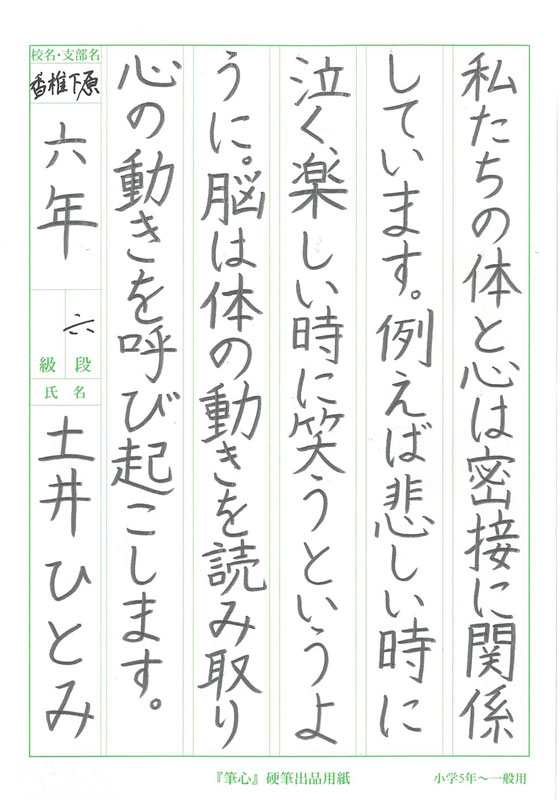 私たちの体と心は密接に関係
しています。例えば悲しい時に
泣く、楽しい時に笑うというよ
うに。脳は体の動きを読み取り
心の動きを呼び起こします。
校名・支部名
香椎下原
六年
六
級 段
氏 名
土井ひとみ
『筆心』硬筆出品用紙
小学5年〜一般用